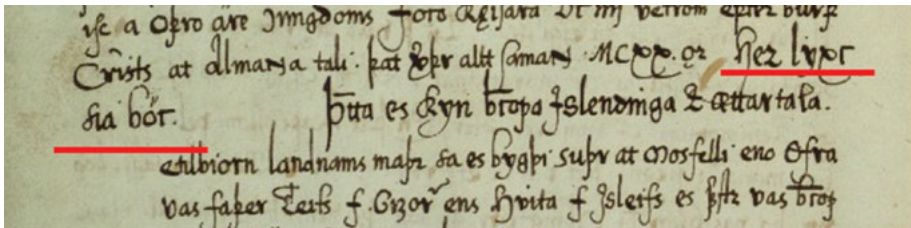 a oþro áre konungdoms Foco kęisara Dc iiij vetrom epter burþ
Crists at almanna tali. þat verþr allt saman MCXX. ǫr her lyxc
sia bóc. Þ̄tta es kyn bc̄opa Islendinga ⁊ ættartala.
etilbiorn landnams maþr sa es bygþi suþr at Mosfelli eno Øfra
vas faþer Teits f. Gizorar ens hvita f Isleifs es fyrstr vas bc̄op